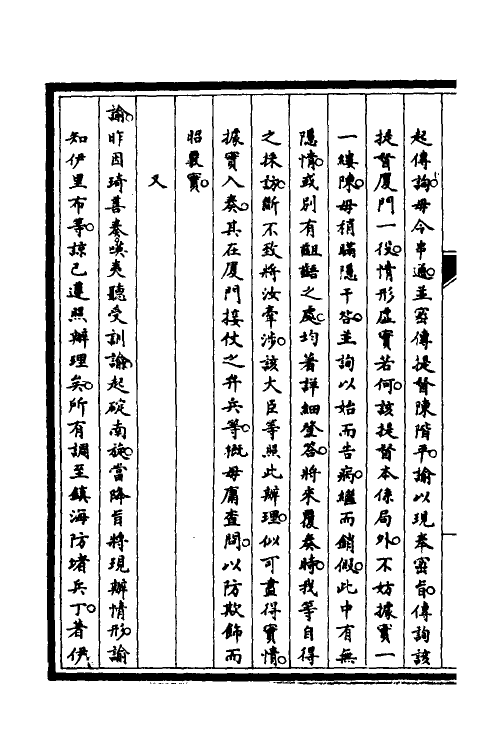 起傳詢毋令串通並密傳提督陳階平諭以現奉密旨傳詢該
提督廈門一役情形虛實若何該提督本係局外不妨據實一
一縷陳毋稍瞞隱干咎並詢以始而告病繼而銷假此中有無
隱情或別有齟齬之處均著詳細登答將來覆奏時我等自得
之採訪斷不致將汝牽涉該大臣等照此辦理似可盡得實情
據實入奏其在廈門接仗之弁兵等概毋庸查問以防欺飾而
昭覈實
又
諭昨因琦善奏㗸夷聽受訓諭起碇南旋當降旨將現辦情形諭
知伊里布等諒已遵照辦理矣所有調至鎮海防堵兵丁著伊